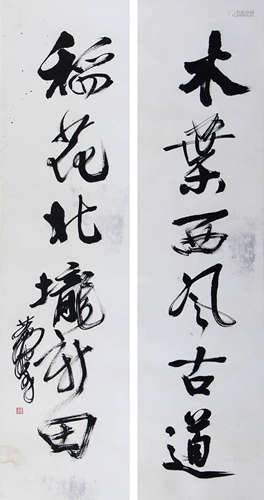 木葉西风古道
稻花北壠新田